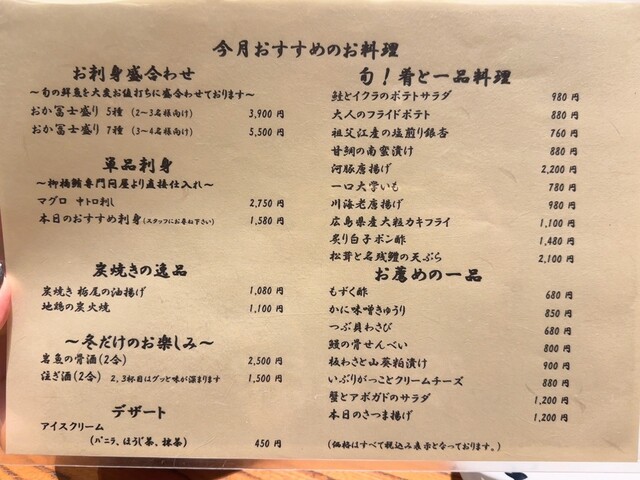 今月おすすめのお料理
お刺身盛合わせ
～旬の鮮魚を大変お値打ちに盛合わせております～
おか冨士盛り 5種 (2～3名様向け) 3,900 円
おか冨士盛り 7種 (3～4名様向け) 5,500 円
単品刺身
～柳橋鮪専門問屋より直接仕入れ～
マグロ 中トロ刺し 2,750 円
本日のおすすめ刺身(スタッフにお尋ね下さい) 1,580 円
炭焼きの逸品
炭焼き 栃尾の油揚げ 1,080 円
地鶏の炭火焼 1,100 円
～冬だけのお楽しみ～
岩魚の骨酒(2合) 2,500 円
注ぎ酒(2合) 2,3杯目はグッと味が深まります 1,500 円
デザート
アイスクリーム
(バニラ、ほうじ茶、抹茶) 450 円
旬！肴と一品料理
鮭とイクラのポテトサラダ 980 円
大人のフライドポテト 880 円
祖父江産の塩煎り銀杏 760 円
甘鯛の南蛮漬け 880 円
河豚唐揚げ 2,200 円
一口大学いも 780 円
川海老唐揚げ 980 円
広島県産大粒カキフライ 1,100 円
炙り白子ポン酢 1,480 円
松茸と名残鱧の天ぷら 2,100 円
お薦めの一品
もずく酢 680 円
かに味噌きゅうり 850 円
つぶ貝わさび 680 円
鰻の骨せんべい 800 円
板わさと山葵粕漬け 900 円
いぶりがっことクリームチーズ 880 円
蟹とアボガドのサラダ 1,200 円
本日のさつま揚げ 1,200 円
(価格はすべて税込み表示となっております。)